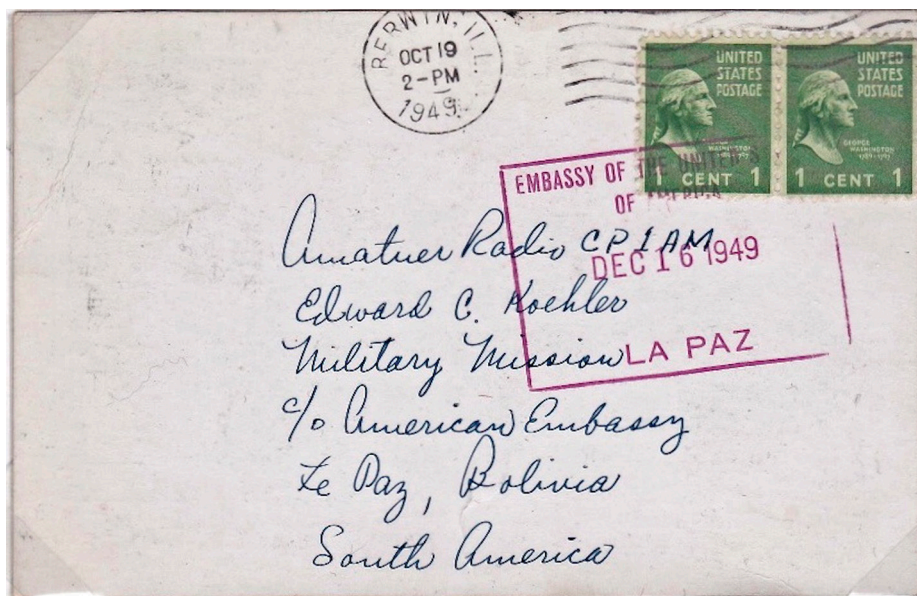 BERWYN, ILL.
OCT 19
2-PM
1949
UNITED
STATES
POSTAGE
GEORGE
WASHINGTON
1789-1797
1 CENT 1
UNITED
STATES
POSTAGE
GEORGE
WASHINGTON
1789-1797
1 CENT 1
EMBASSY OF THE UNITED
OF AMERICA
DEC 16 1949
LA PAZ
Amatuer Radio CP1AM
Edward C. Koehler
Military Mission
c/o American Embassy
Le Paz, Bolivia
South America